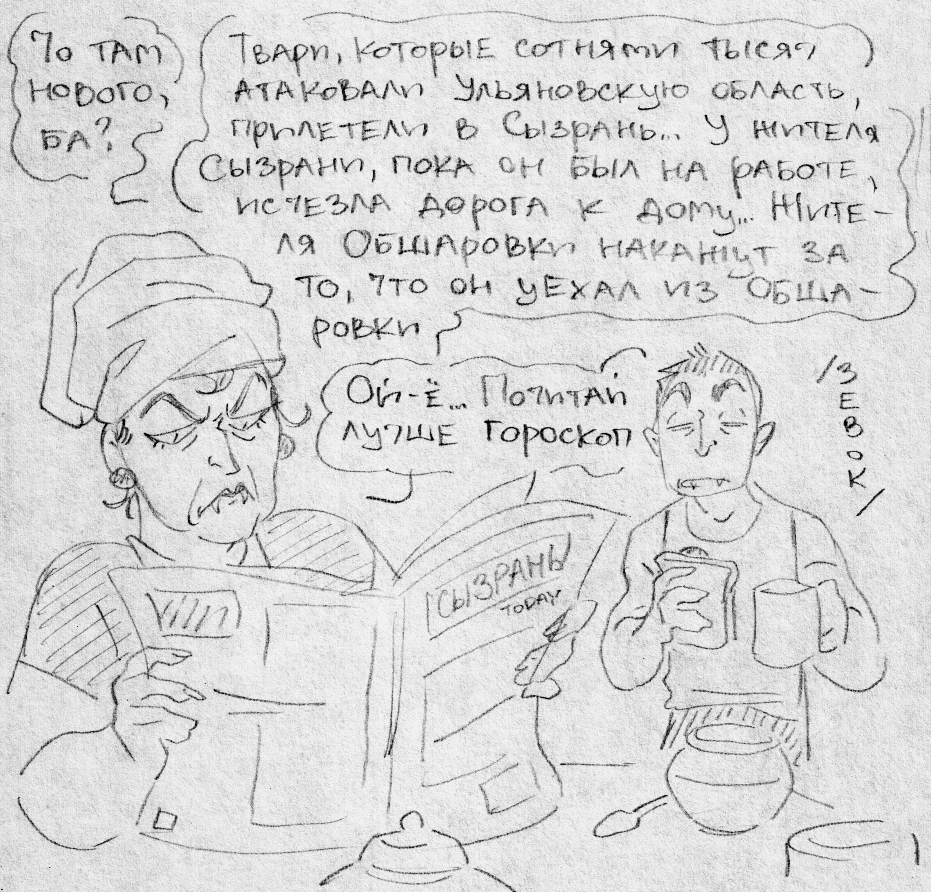 Чо там
нового,
ба?
Твари, которые сотнями тысяч
атаковали Ульяновскую область,
прилетели в Сызрань... У жителя
Сызрани, пока он был на работе,
исчезла дорога к дому... Жите-
ля Обшаровки накажут за
то, что он уехал из Обша-
ровки
Ой-ё... Почитай
лучше гороскоп
/ЗЕВОК/
СЫЗРАНЬ
TODAY